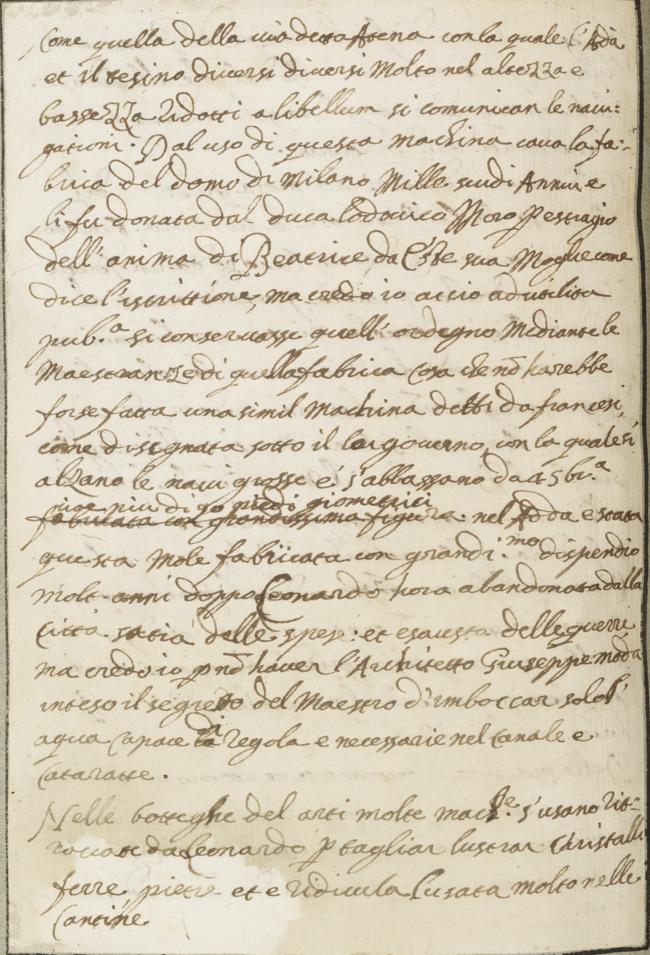 Come quella della via detta Arena con la quale l'Adda
et il tesino diversi diversi Molto nel altezza e
bassezza ridotti a libellum si comunican le navi:
gationi. Dal uso di questa machina cava la fa:
brica del domo di Milano Mille scudi Annui e
li fu donata dal duca lodovico Moro p
dell'anima di Beatrice da Este sua Moglie come
dice l'iscrittione, ma credo io accio ad utilita
pub.a si conservasse quell'ordegno Mediante le
Maestranze di quella fabrica cosa che nō harebbe
forse fatta una simil machina detti da francesi,
come disegnata sotto il lor governo, con la quale si
alzano le navi grosse e s'abbassano da 45 br.a
piu di 90 piedi giometrici
fabricata con grandissima figura. nel Adda e stata
questa Mole fabricata con grandi.mo dispendio
molt anni doppo Leonardo hora abandonata dalla
Citta satia delle spese et esausta delle guerre
ma credo io p nō haver l'Architetto Giuseppe
inteso il segreto del Maestro d'imboccar solo l'
aqua capace di regola e necessarie nel Canale e
Cataratte.
Nelle botteghe del arti molte mac.he s'usano rit:
rovate da Leonardo p tagliar lustrar Christalli
ferre pietre et e ridicula l'usata molto nelle
Cantine